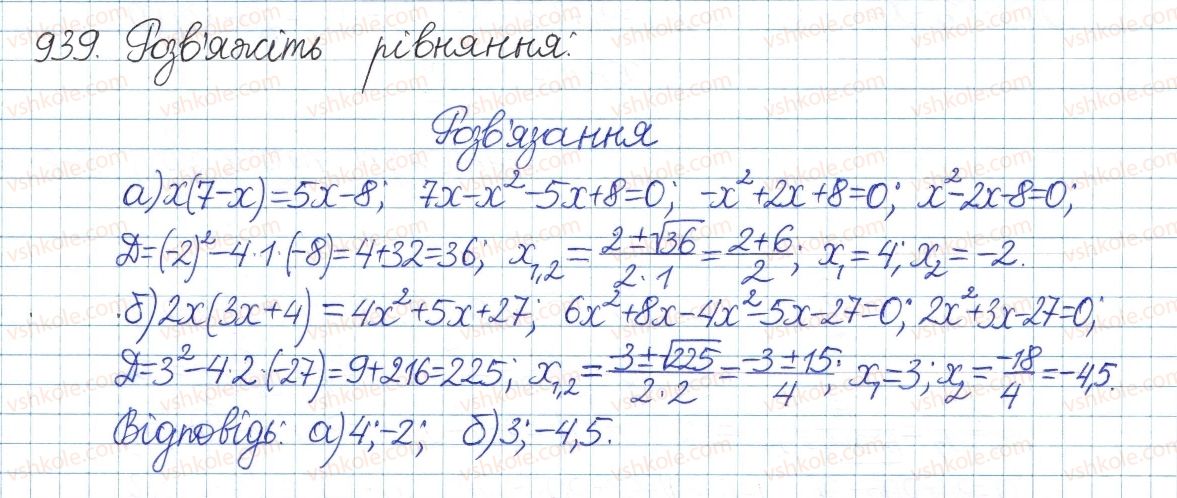 939. Розв'яжіть рівняння:
Розв'язання
а) x(7-x)=5x-8; 7x-x²-5x+8=0; -x²+2x+8=0; x²-2x-8=0;
Д=(-2)²-4·1·(-8)=4+32=36; x₁,₂ = (2±√36)/(2·1) = (2+6)/2; x₁=4; x₂=-2.
б) 2x(3x+4)=4x²+5x+27; 6x²+8x-4x²-5x-27=0; 2x²+3x-27=0;
Д=3²-4·2·(-27)=9+216=225; x₁,₂ = (-3±√225)/(2·2) = (-3±15)/4; x₁=3; x₂ = -18/4 = -4,5.
Відповідь: а) 4; -2; б) 3; -4,5.